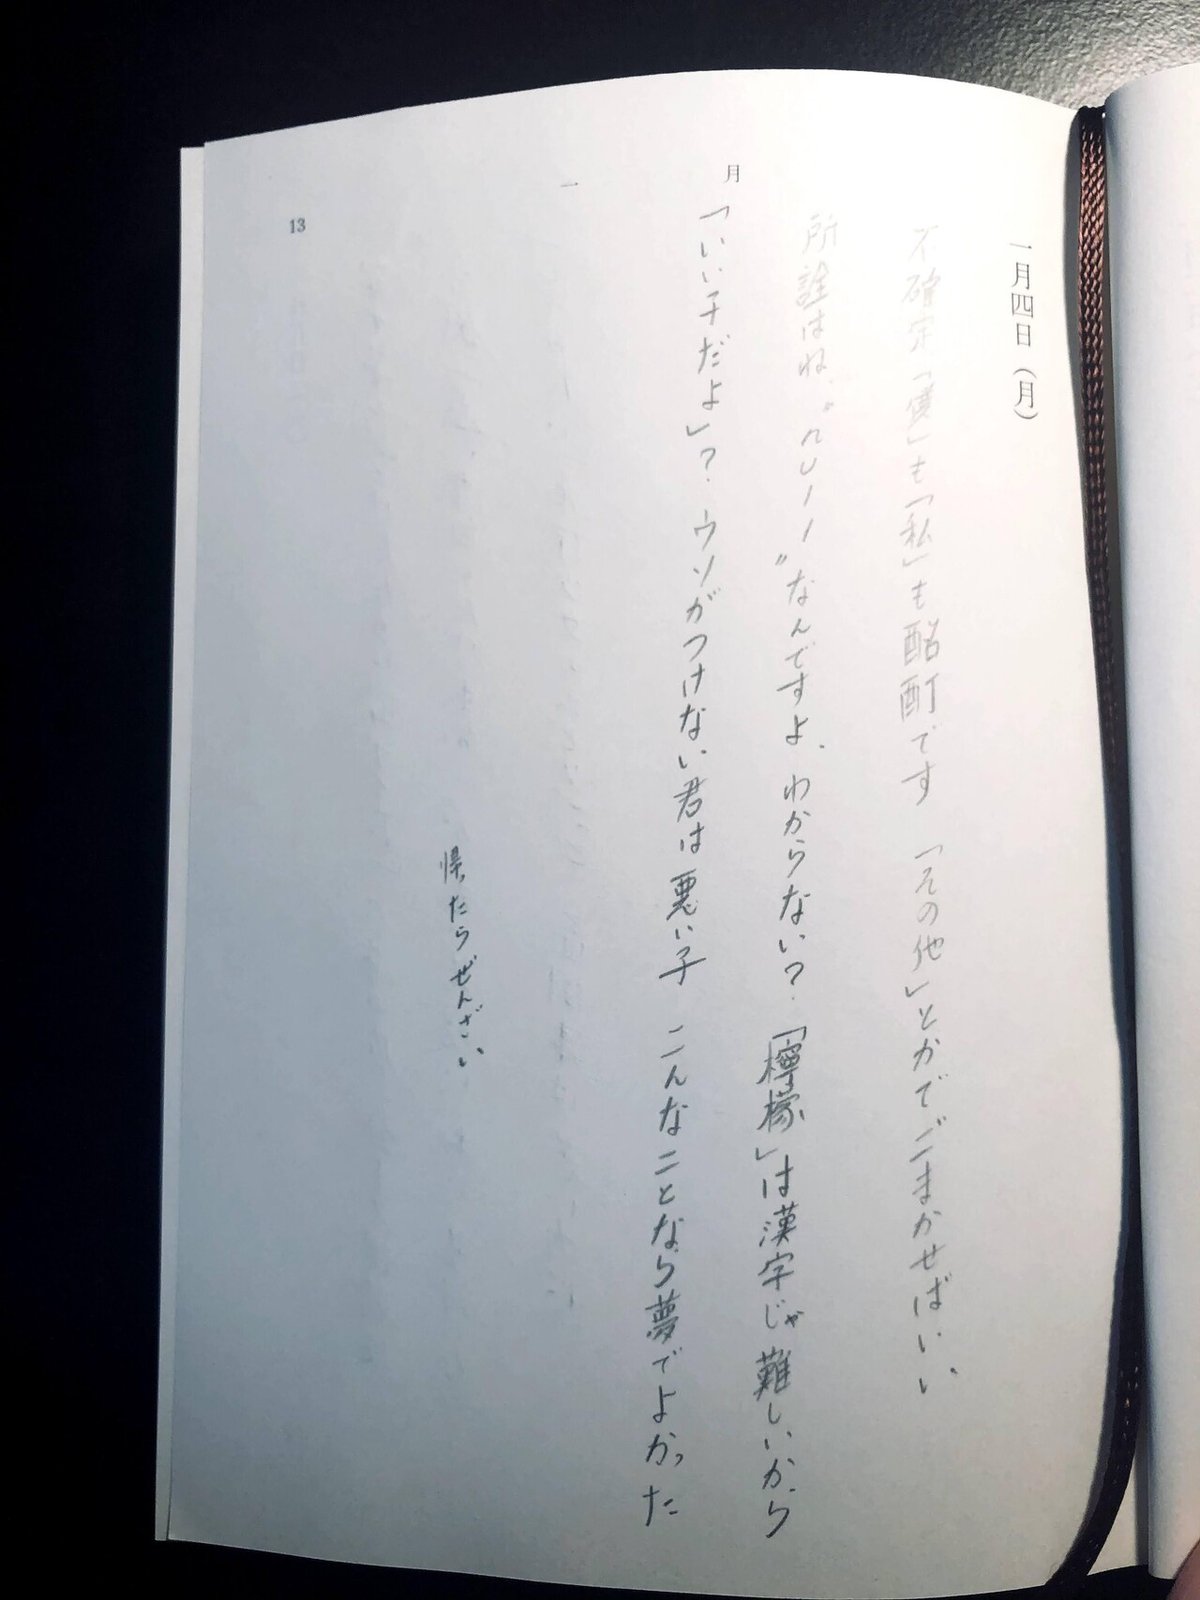 一月四日（月）
不確定「僕」も「私」も酩酊です　「その他」とかでごまかせばいい
所詮はね、"null"なんですよ、わからない？「檸檬」は漢字じゃ難しいから
月
「いい子だよ」？ウソがつけない君は悪い子　こんなことなら夢でよかった
一
帰ったらぜんざい
13